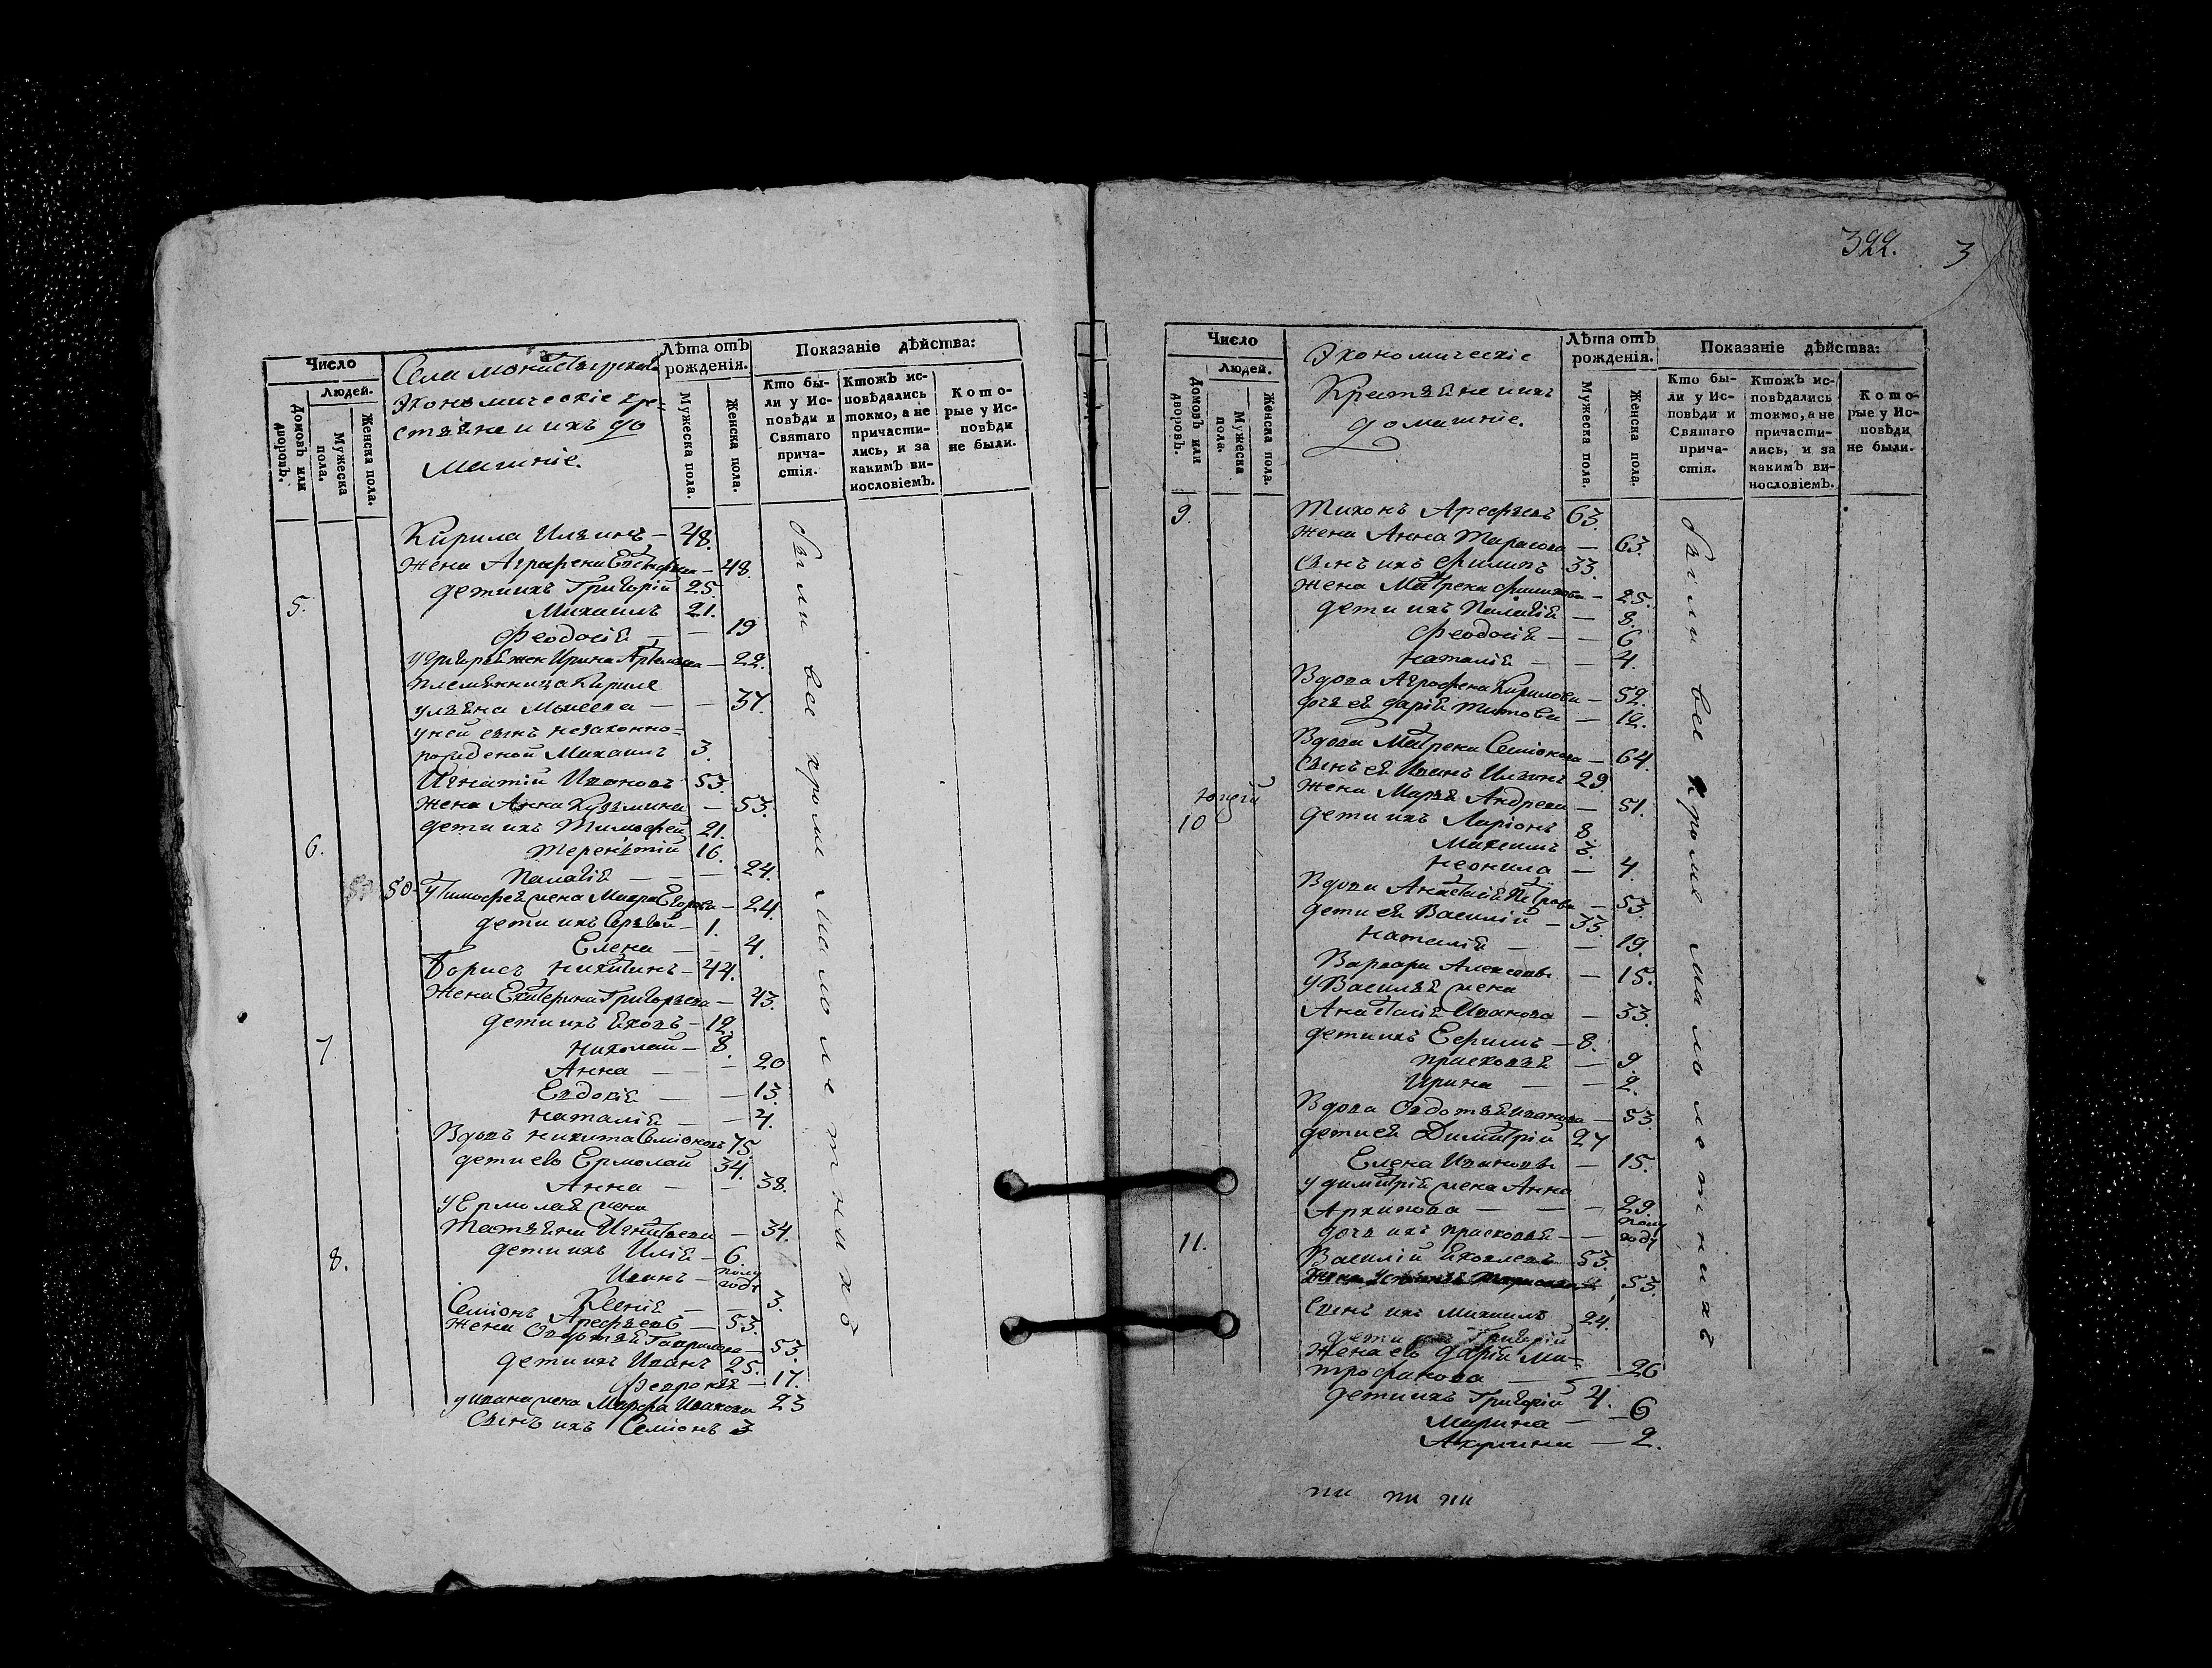 Число
Людей.
Домовъ или дворовъ.
Мужеска пола.
Женска пола.
Села
Экономическіе кре-
стьяне и ихъ до
машніе.
Лѣта отъ рожденія.
Мужеска пола.
Женска пола.
Показаніе дѣйства:
Кто бы-
ли у Ис-
повѣди и
Святаго
прича-
стія.
Ктожъ ис-
повѣдались
токмо, а не
причасти-
лись, и за
какимъ ви-
нословіемъ.
Кото-
рые у Ис-
повѣди
не были.
были все кроме малолетныхъ
Кирила Ильинъ – 48.
жена Аграфена – 48.
5. дети ихъ Григорій 25.
Михаилъ 21.
Феодосія – – 19
у Григорья жен Ирина – 22.
племянница Кирила
ульяна Моисеева – – 37.
у ней сынъ незаконно=
рожденой Михаилъ 3.
Игнатій Ивановъ 53.
жена Анна Кузьмина – 53.
6. дети ихъ Тимофей 21.
Терентій 16.
Палагія – – 24.
50 у Тимофея жена Мавра Егорова – 24.
дети ихъ Сергей – 1.
Елена – – 4.
Борисъ Никитинъ – 44.
Жена Екатерина Григорьева – 43.
дети ихъ Яковъ – 12.
7 Николай – 8.
Анна – – 20
Евдокія – – 13.
Наталія – – 4.
Вдовъ Никита Семіоновъ 75.
дети ево Ермолай 34.
Анна – – 38.
у Ермолая жена
Татьяна Игнатьева – 34.
8. дети ихъ Илія – 6.
Иванъ – полу
году
Ксенія – – 3.
Семіонъ Арефьевъ – 53.
жена Овдотья Гаврилова – 53.
дети ихъ Иванъ 25.
Февронья – 17.
у ивана жена Марфа Иванова 23
Сынъ ихъ Семіонъ 3
322. 3
Число
Людей.
Домовъ или дворовъ.
Мужеска пола.
Женска пола.
Экономическіе
Крестьяне и ихъ
домашніе.
Лѣта отъ рожденія.
Мужеска пола.
Женска пола.
Показаніе дѣйства:
Кто бы-
ли у Ис-
повѣди и
Святаго
прича-
стія.
Ктожъ ис-
повѣдались
токмо, а не
причасти-
лись, и за
какимъ ви-
нословіемъ.
Кото-
рые у Ис-
повѣди
не были.
были все кроме малолетныхъ
9. Тихонъ Арефьевъ 63.
жена Анна Тарасова – 63.
сынъ ихъ Филипъ 33.
жена Матрена – 25.
дети ихъ Палагія – 8.
Феодосія – – 6
Наталія – – 4.
Вдова Аграфена Кирилова – 52.
дочь ея дарія Титова – 12.
Вдова Матрена Семіонова – 64.
сынъ ея Иванъ Ильинъ 29.
жена Марья Андреева – 51.
10 дети ихъ Ларіонъ 8
Михаилъ 3.
Неонила – 4.
Вдова Анастасія Петрова – 53.
дети ея Василій – 33.
Наталія – – 19.
Варвара Алексеева – 15.
у Василья жена
Анастасія Иванова – 33.
дети ихъ Ефимъ – 8.
прасковья – 9.
Ирина – – 2.
Вдова Овдотья иванова – 53.
дети ея Димитрій 27
Елена Иванова – 15.
у димитрія жена Анна
Архипова – – – 29.
дочь ихъ прасковья – – полу
году
11. Василій Яковлевъ – 53.
53.
Сынъ ихъ Михаилъ 24.
дети Григорій
жена ево дарія Ми-
трофанова – – 26
дети ихъ Григорій 4.
Марина – – 6
Акулина – 2.
пи пи пи